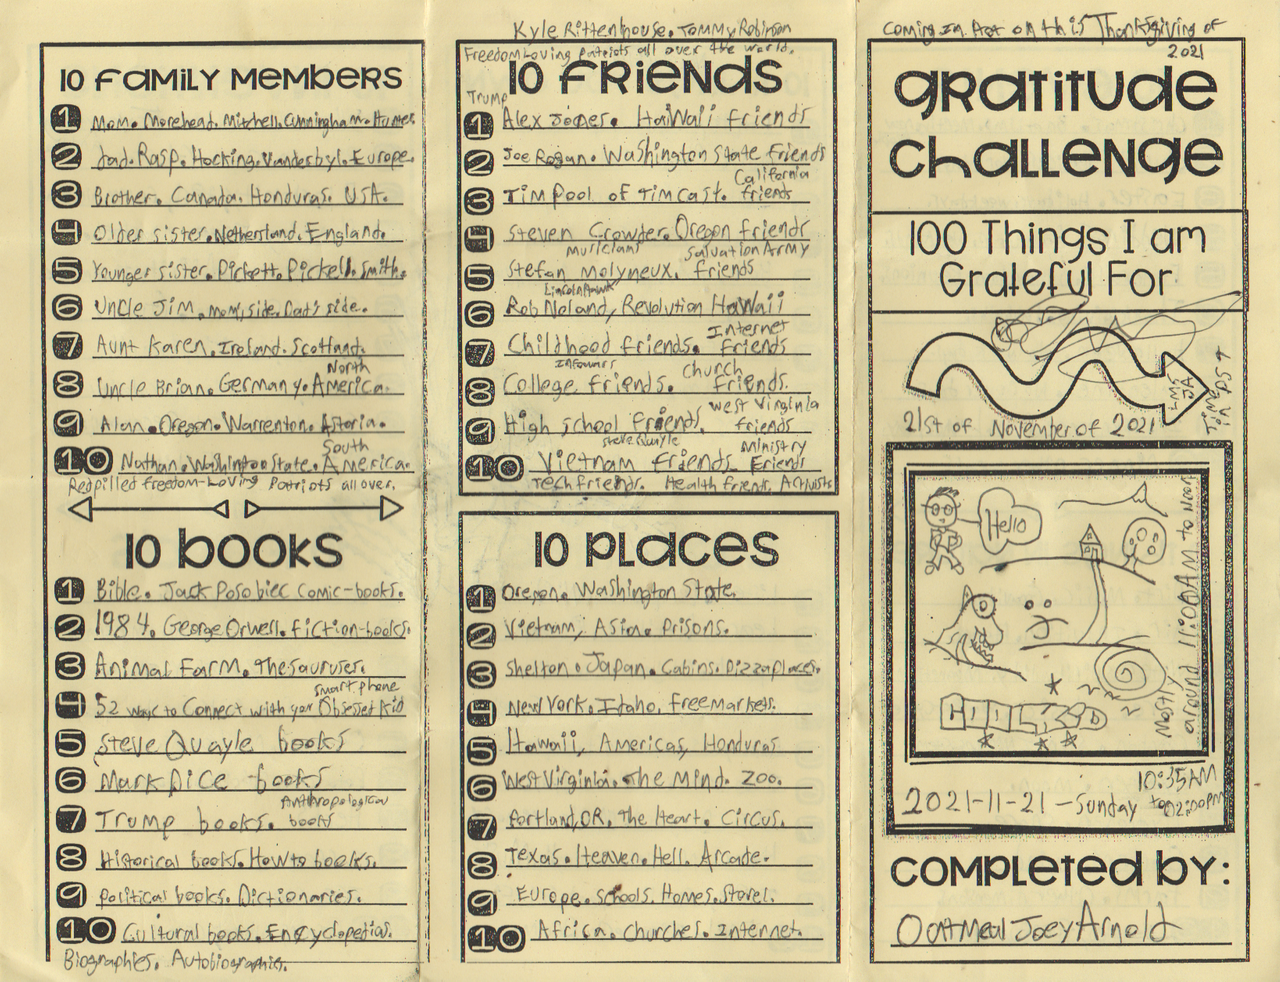 10 Family Members
1 Mom. Morehead. Mitchell. Cunningham. Hunter.
2 Dad. Rasp. Hocking. Vanderbyl. Europe.
3 Brother. Canada. Honduras. USA.
4 Older sister. Netherland. England.
5 Younger sister. Pickett. Pickell. Smith.
6 Uncle Jim. Mom, side. Dad's side.
7 Aunt Karen. Ireland. Scotland.
North
8 Uncle Brian. Germany. America.
9 Alan. Oregon. Warrenton. Astoria.
South
10 Nathan. Washington State. America.
Redpilled freedom-Loving Patriots all over.
10 Books
1 Bible. Jack Posobiec Comic-books.
2 1984. George Orwell. Fiction-books.
3 Animal Farm. Thesauruses.
smart phone
4 52 ways to Connect with your Obsessed Kid
5 Steve Quayle books
6 Mark Dice books
Anthropological
7 Trump books. books
8 Historical books. How to books.
9 Political books. Dictionaries.
10 Cultural books. Encyclopedias.
Biographies. Autobiographies.
Kyle Rittenhouse. Tommy Robinson
Freedom Loving Patriots all over the world.
10 Friends
Trump
1 Alex Jones. Hawaii friends
2 Joe Rogan. Washington State Friends
California
3 Tim Pool of Timcast. friends
4 Steven Crowder. Oregon friends
musicians Salvation Army
5 Stefan Molyneux, friends
Lincoln Park
6 Rob Noland, Revolution Hawaii
Internet
7 Childhood friends. friends
Infowars church
8 College friends. friends.
West Virginia
9 High school friends, friends
Steve Quayle Ministry
10 Vietnam friends Friends
Tech friends. Health friends. Activists
10 Places
1 Oregon. Washington State.
2 Vietnam, Asia. Prisons.
3 Shelton. Japan. Cabins. Pizza places.
4 New York. Idaho. Free Markets.
5 Hawaii, Americas, Honduras
6 West Virginia. The Mind. Zoo.
7 Portland, OR. The Heart. Circus.
8 Texas. Heaven. Hell. Arcade.
9 Europe. Schools. Homes.
10 Africa. Churches. Internet.
Coming In Hot on this Thanksgiving of
2021
Gratitude
Challenge
100 Things I am
Grateful For
21st of November of 2021
Hello
Mostly around 11:00AM to Noon
COOL KID
10:35AM
2021-11-21 - Sunday to 02:00PM
Completed by:
Oatmeal Joey Arnold